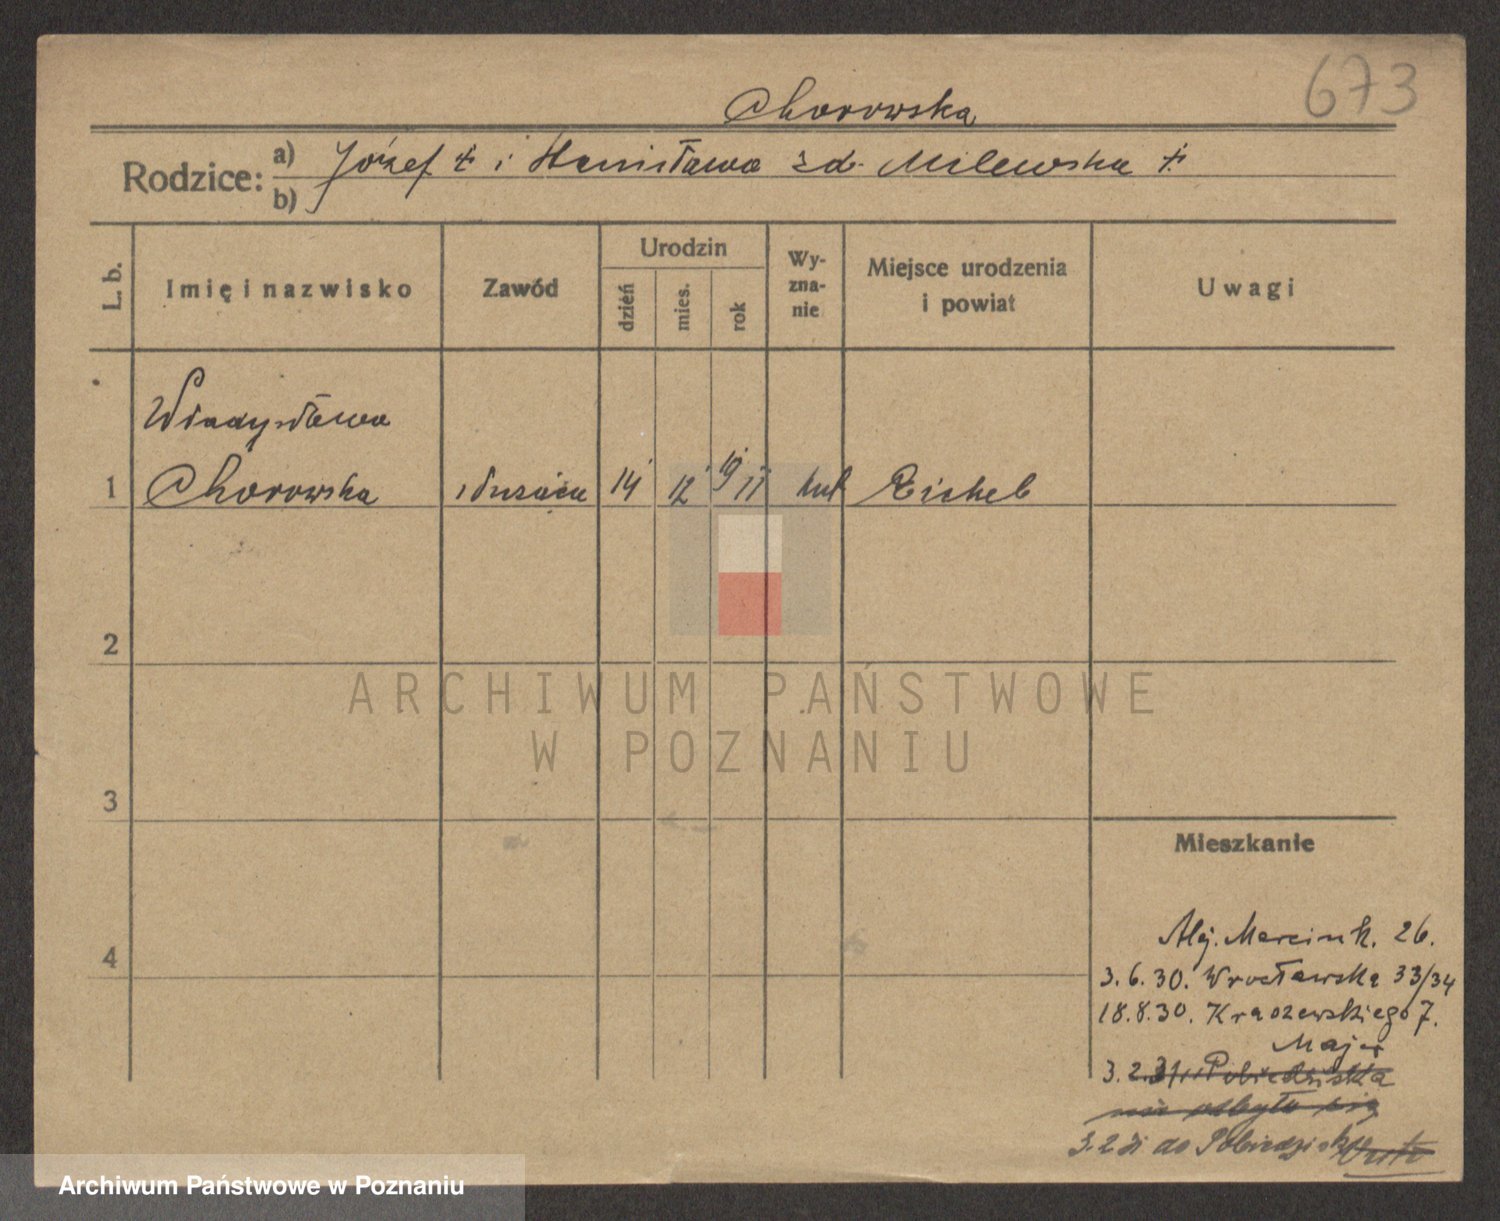 673
Chorowska
Rodzice: a) Józef † i Stanisława zd. Milewska †
b)
L. b.
Imię i nazwisko
Zawód
Urodzin
dzień
mies.
rok
Wy-
zna-
nie
Miejsce urodzenia
i powiat
Uwagi
Władysława
1 Chorowska służąca 14 12 19 11 kat Eichel
2
3
4
ARCHIWUM PAŃSTWOWE
W POZNANIU
Mieszkanie
Alej. Marcink. 26.
3.6.30. Wrocławska 33/34
18.8.30. Kraszewskiego 7.
3.2.31 Pobiedziska
nie odbyło się
3.2 31 do Pobiedzisk
Archiwum Państwowe w Poznaniu